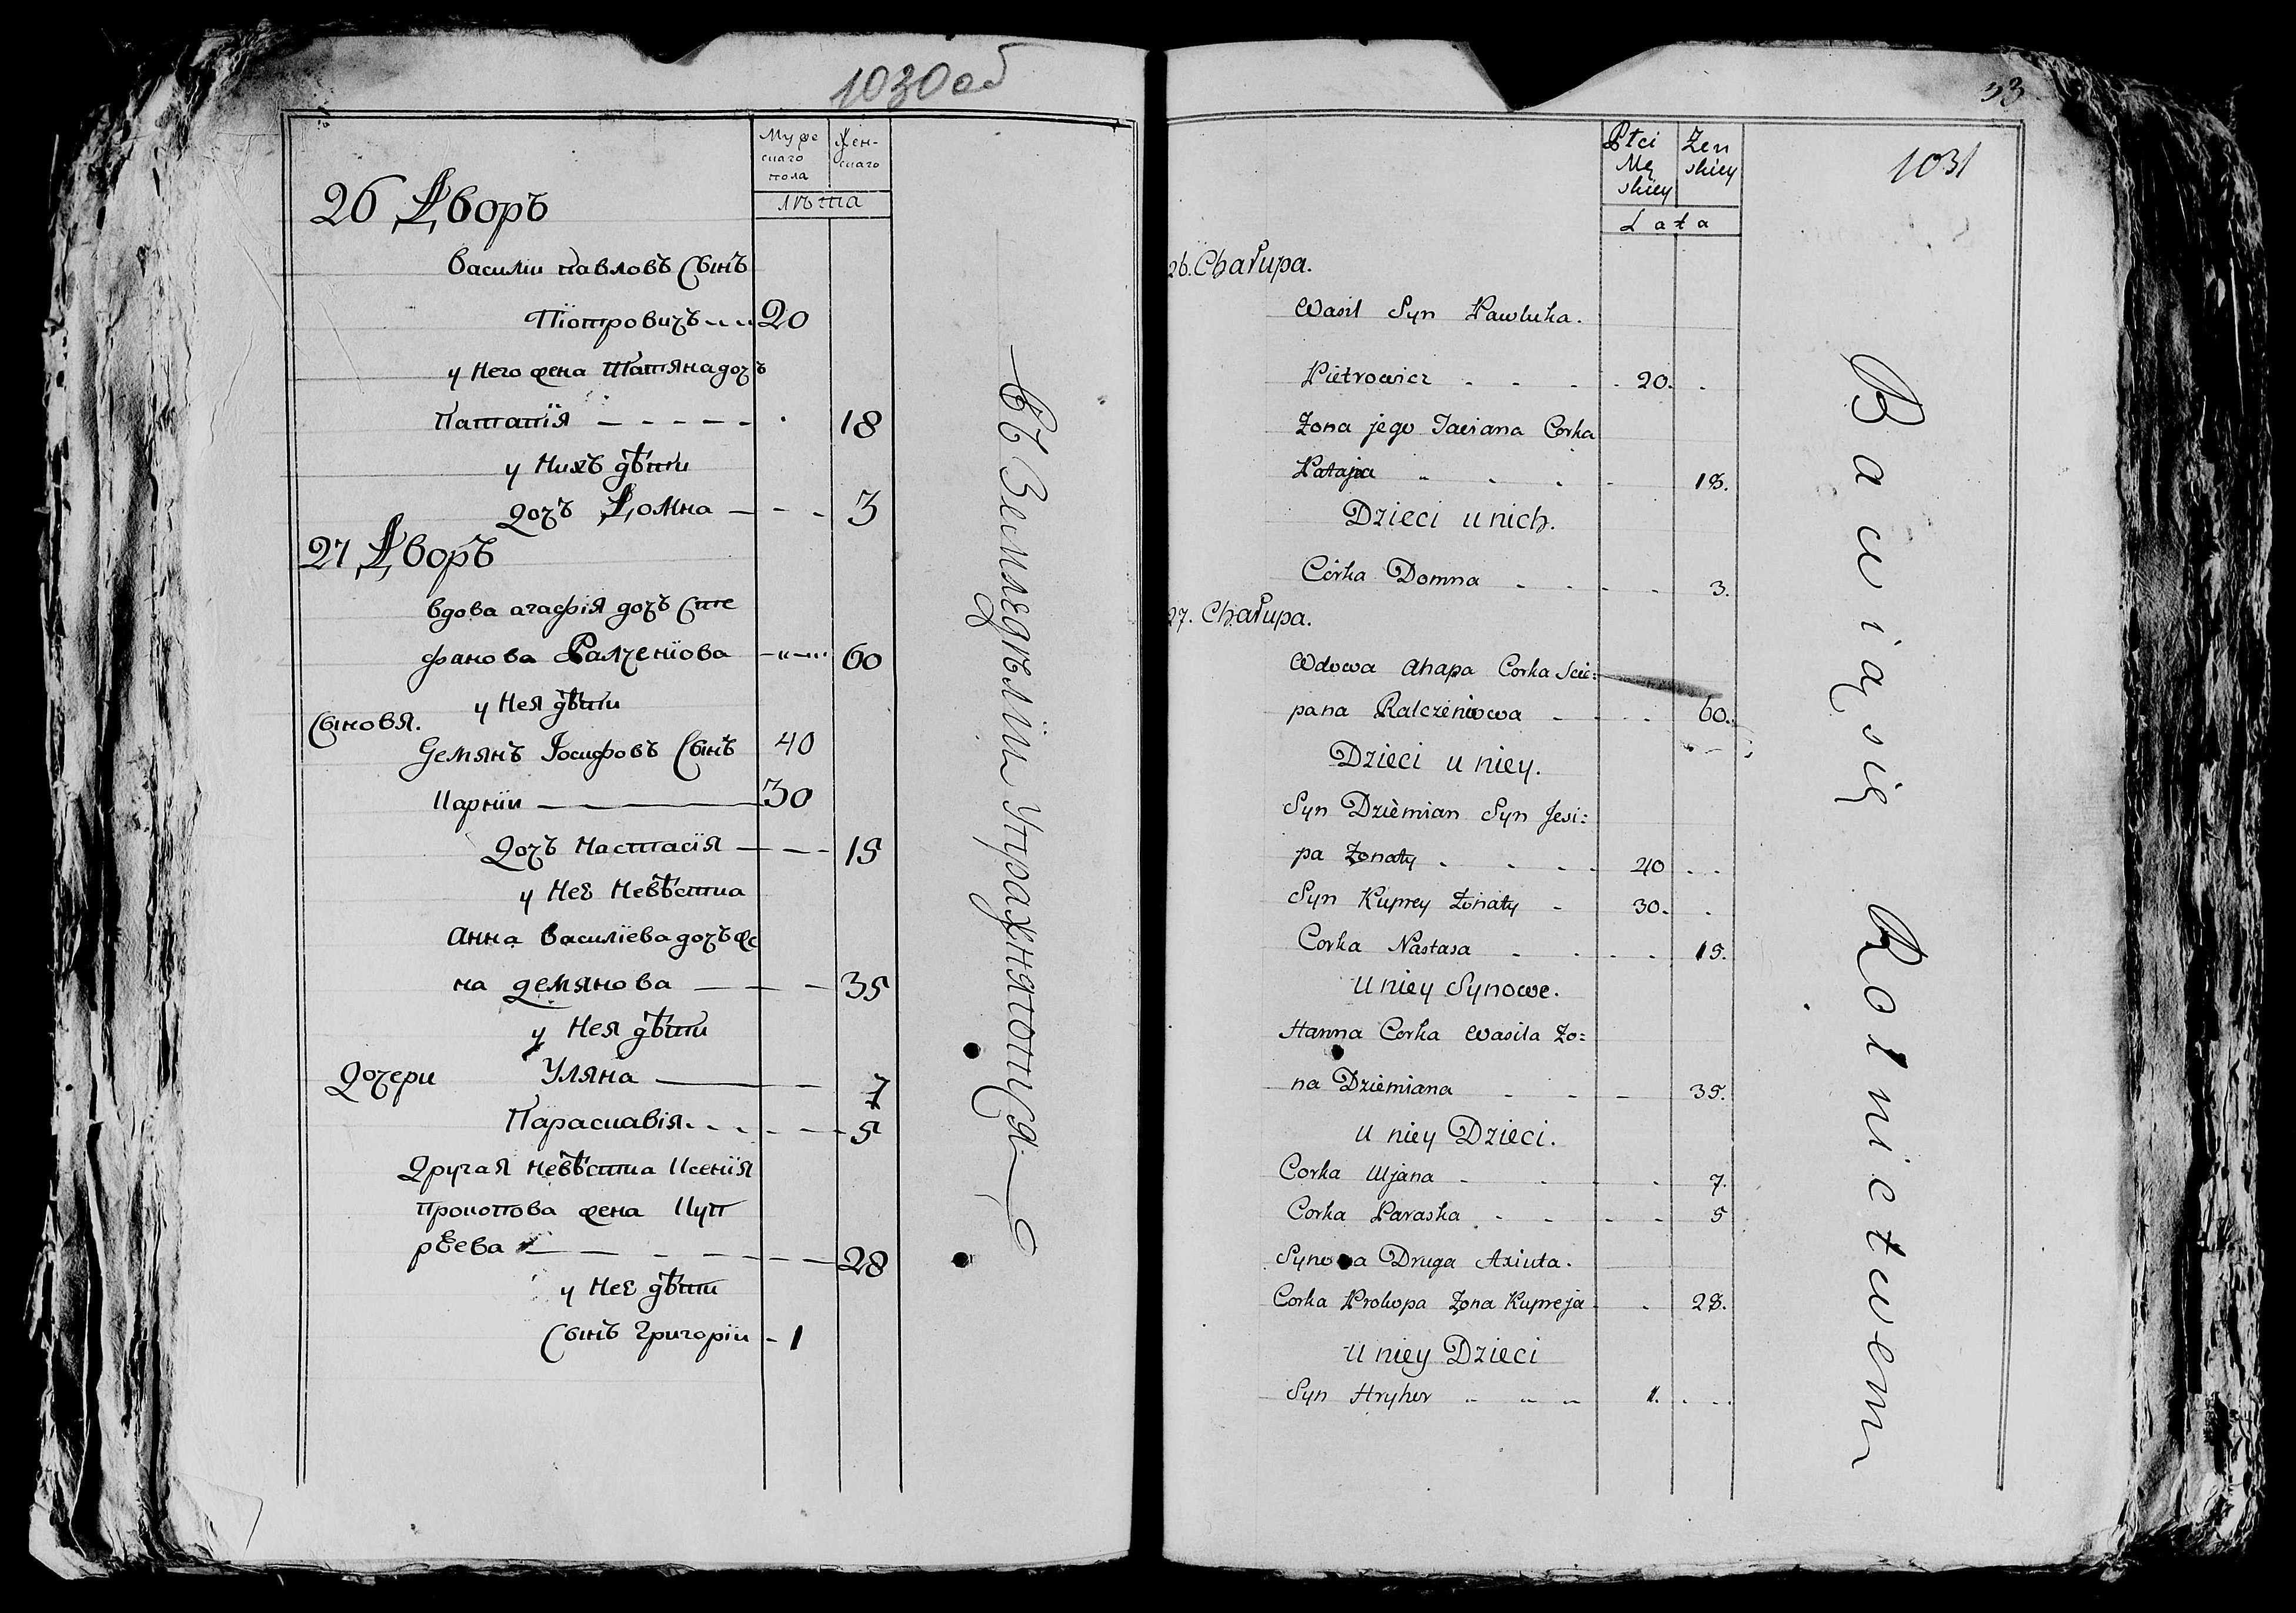 1030 об
Муже
скаго
пола
Жен-
скаго
лѣта
26 Дворъ
Василии павловъ Сынъ
Піотровичъ 20
у Него жена Татяна дочъ
Патапія 18
у Нихъ дѣти
Дочъ Домна 3
27 Дворъ
вдова агафія дочъ Сте
фанова Ралченіова 60
у Нея дѣти
Сыновя.
Демянъ Іосифовъ Сынъ 40
30
Дочъ Настасія 15
у Неѣ Невѣстка
Анна Василіева дочъ же
на демянова 35
у Нея дѣти
Дочери Уляна 7
Параскавія 5
Другая невѣстка Ксенія
прокопова жена Куп
рѣева 28
у Неѣ дѣти
Сынъ Григоріи 1
въ Земледѣліи Упражняютця
53
1031
Płci
Mę
skiey
Żen
skiey
Lata
26. Chałupa.
Wasil Syn Pawluka.
Pietrowicz 20.
Żona jego Taciana Corka
Patapa 18.
Dzieci u nich.
Córka Domna 3.
27. Chałupa.
Wdowa Ahapa Corka Scie=
pana Ralczeniowa 60.
Dzieci u niey.
Syn Dziemian Syn Jesi=
pa Żonaty 40
Syn Kuprey Żonaty 30.
Corka Nastasa 15.
U niey Synowe.
Hanna Corka Wasila Żo=
na Dziemiana 35.
U niey Dzieci.
Corka Uljana 7.
Corka Paraska 5
Synowa Druga Axiuta.
Corka Prokopa Żona Kupreja 28.
U niey Dzieci
Syn Hryhor 1.
Bawią się Rolnictwem